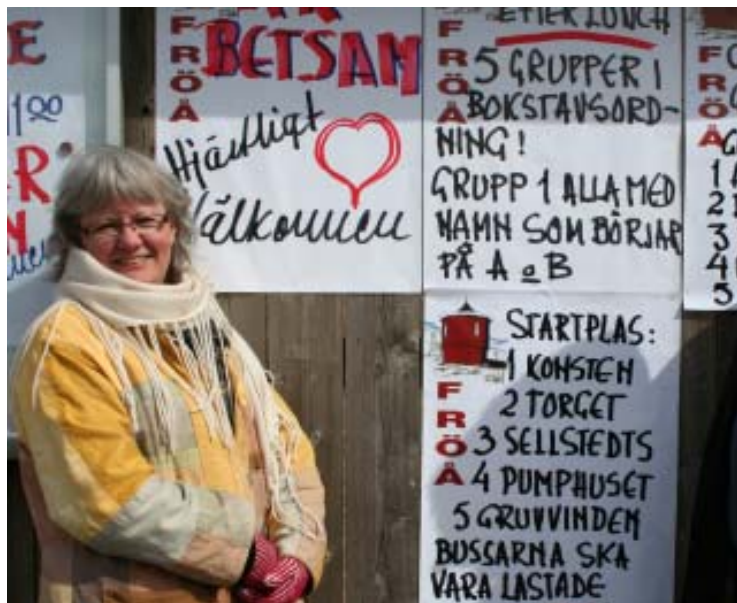 FRÖÅ
BETSAM
Hjärtligt
Välkommen
EFTER LUNCH
FRÖÅ
5 GRUPPER I
BOKSTAVSORD-
NING!
GRUPP 1 ALLA MED
NAMN SOM BÖRJAR
PÅ A o B
FRÖÅ
STARTPLAS:
1 KONSTEN
2 TORGET
3 SELLSTEDTS
4 PUMPHUSET
5 GRUVVINDEN
BUSSARNA SKA
VARA LASTADE
FRÖÅ
1
2
3
4
5